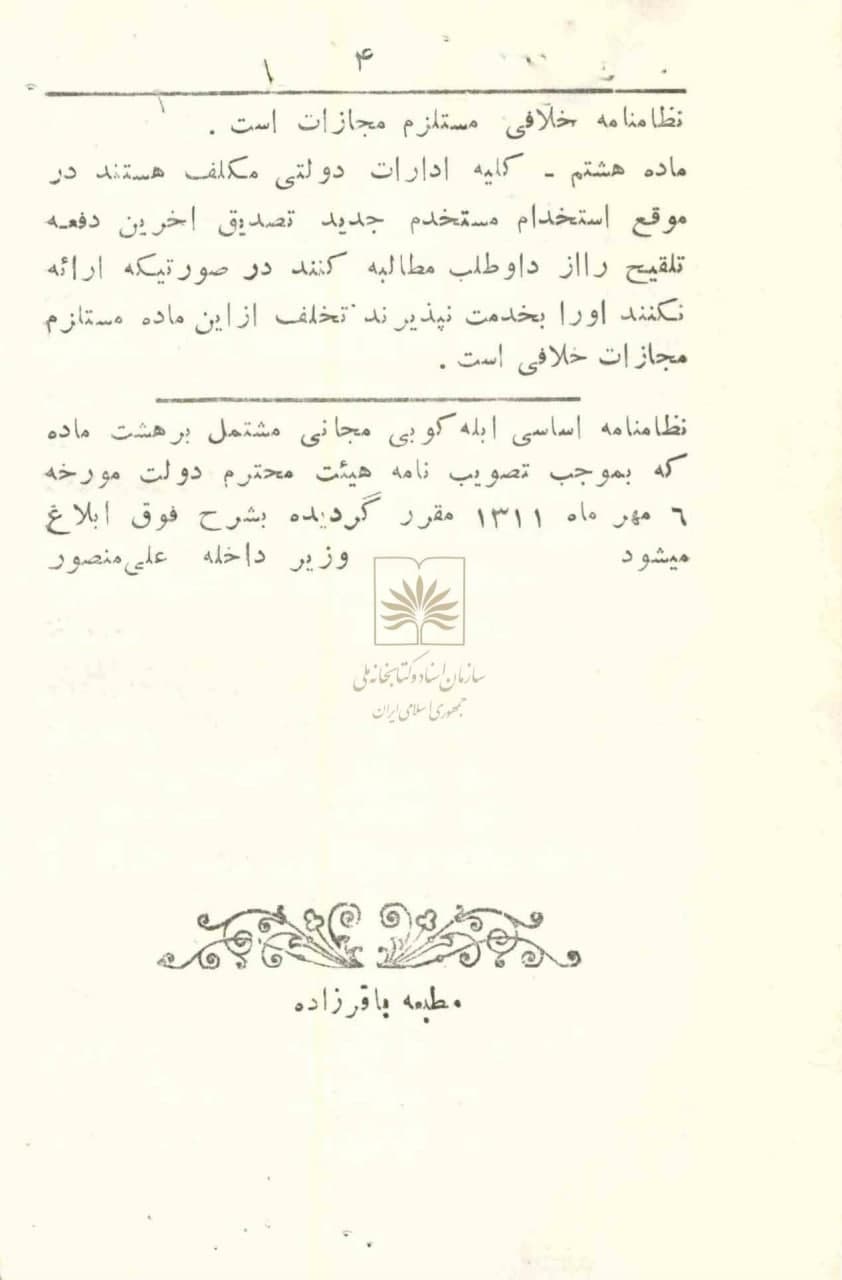 ۴
نظامنامه خلافی مستلزم مجازات است .
ماده هشتم - کلیه ادارات دولتی مکلف هستند در
موقع استخدام مستخدم جدید تصدیق اخرین دفعه
تلقیح رااز داوطلب مطالبه کنند در صورتیکه ارائه
نکنند اورا بخدمت نپذیرند تخلف ازاین ماده مستلزم
مجازات خلافی است .
نظامنامه اساسی ابله کوبی مجانی مشتمل برهشت ماده
که بموجب تصویب نامه هیئت محترم دولت مورخه
٦ مهر ماه ١٣١١ مقرر گردیده بشرح فوق ابلاغ
میشود وزیر داخله علی منصور
سازمان اسناد و کتابخانه ملی
جمهوری اسلامی ایران
مطبعه باقرزاده